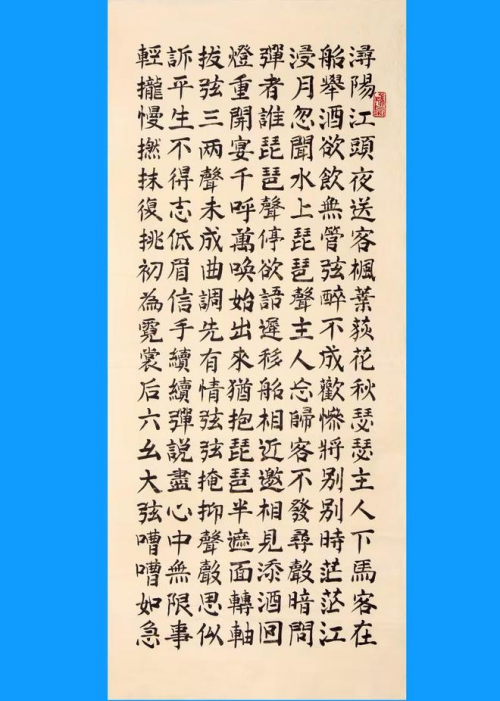 潯陽江頭夜送客楓葉荻花秋瑟瑟主人下馬客在
船舉酒欲飲無管弦醉不成歡慘將別別時茫茫江
浸月忽聞水上琵琶聲主人忘歸客不發尋聲暗問
彈者誰琵琶聲停欲語遲移船相近邀相見添酒回
燈重開宴千呼萬喚始出來猶抱琵琶半遮面轉軸
拔弦三兩聲未成曲調先有情弦弦掩抑聲聲思似
訴平生不得志低眉信手續續彈說盡心中無限事
輕攏慢撚抹復挑初為霓裳后六幺大弦嘈嘈如急